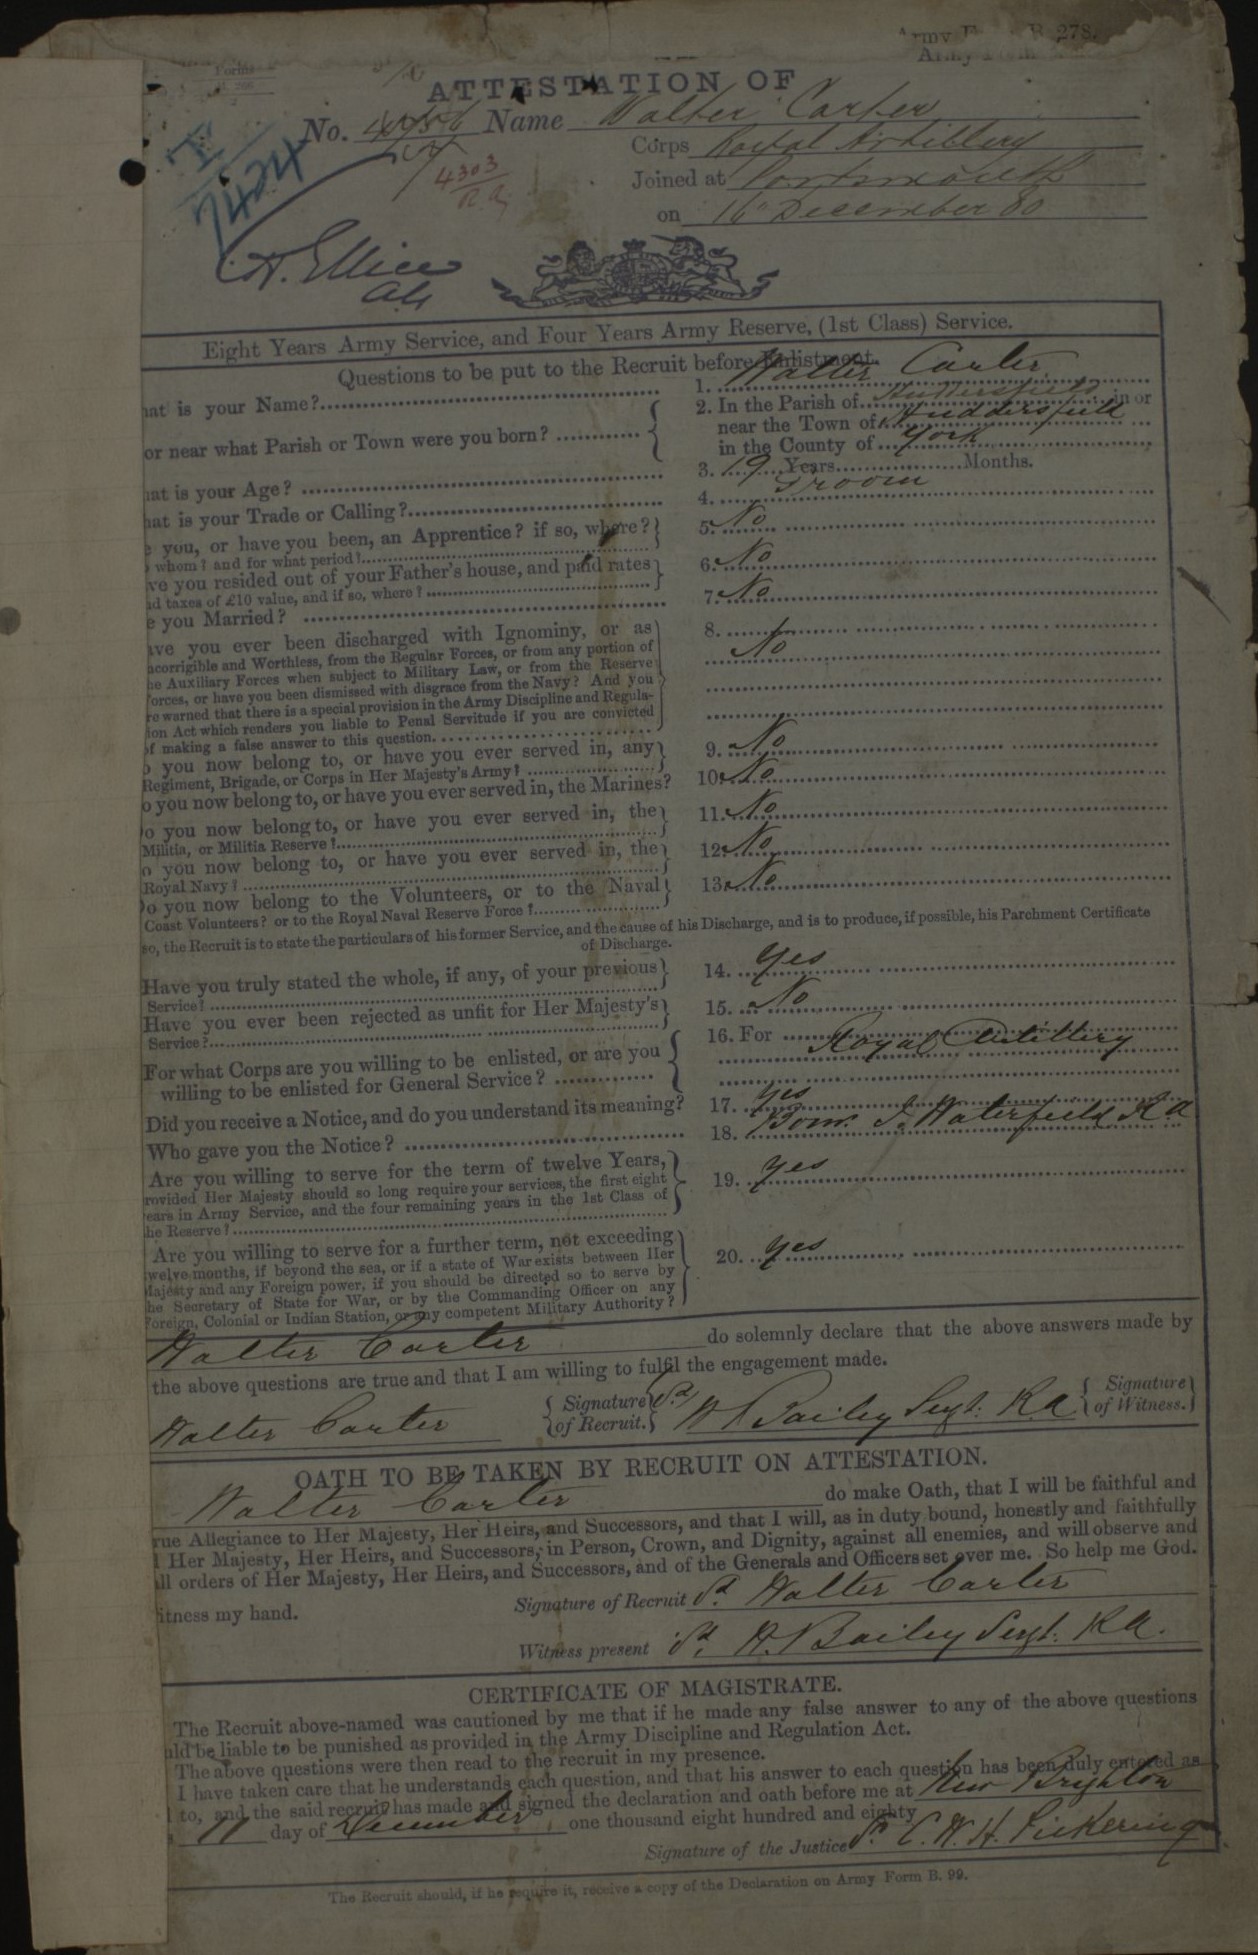 Army F B 278.
Forms
ATTESTATION OF
No. Name Walter Carter
Corps Royal Artillery
4303
R.A.
Joined at Portsmouth
on 16 December 80
I
7424
H. Ellice
Eight Years Army Service, and Four Years Army Reserve, (1st Class) Service.
Questions to be put to the Recruit before Enlistment.
hat is your Name? 1. Walter Carter
or near what Parish or Town were you born? 2. In the Parish of Huddersfield in or
near the Town of Huddersfield
in the County of York
hat is your Age? 3. 19 Years Months.
hat is your Trade or Calling? 4. Groom
e you, or have you been, an Apprentice? if so, where? 5. No
whom? and for what period?
ve you resided out of your Father's house, and paid rates 6. No
nd taxes of £10 value, and if so, where?
e you Married? 7. No
ave you ever been discharged with Ignominy, or as 8. No
ncorrigible and Worthless, from the Regular Forces, or from any portion of
he Auxiliary Forces when subject to Military Law, or from the Reserve
Forces, or have you been dismissed with disgrace from the Navy? And you
re warned that there is a special provision in the Army Discipline and Regula-
ion Act which renders you liable to Penal Servitude if you are convicted
of making a false answer to this question.
o you now belong to, or have you ever served in, any 9. No
Regiment, Brigade, or Corps in Her Majesty's Army?
o you now belong to, or have you ever served in, the Marines? 10. No
o you now belong to, or have you ever served in, the 11. No
Militia, or Militia Reserve?
o you now belong to, or have you ever served in, the 12. No
Royal Navy?
o you now belong to the Volunteers, or to the Naval 13. No
Coast Volunteers? or to the Royal Naval Reserve Force?
so, the Recruit is to state the particulars of his former Service, and the cause of his Discharge, and is to produce, if possible, his Parchment Certificate
of Discharge.
Have you truly stated the whole, if any, of your previous 14. Yes
Service?
Have you ever been rejected as unfit for Her Majesty's 15. No
Service?
For what Corps are you willing to be enlisted, or are you 16. For Royal Artillery
willing to be enlisted for General Service?
Did you receive a Notice, and do you understand its meaning? 17. Yes
Who gave you the Notice? 18. Bom. J. Waterfield R.A
Are you willing to serve for the term of twelve Years, 19. Yes
rovided Her Majesty should so long require your services, the first eight
ears in Army Service, and the four remaining years in the 1st Class of
he Reserve?
Are you willing to serve for a further term, not exceeding 20. Yes
twelve months, if beyond the sea, or if a state of War exists between Her
Majesty and any Foreign power, if you should be directed so to serve by
he Secretary of State for War, or by the Commanding Officer on any
Foreign, Colonial or Indian Station, or any competent Military Authority?
Walter Carter do solemnly declare that the above answers made by
the above questions are true and that I am willing to fulfil the engagement made.
Walter Carter Signature of Recruit. Sd H Bailey Sergt. R.A Signature of Witness.
OATH TO BE TAKEN BY RECRUIT ON ATTESTATION.
Walter Carter do make Oath, that I will be faithful and
rue Allegiance to Her Majesty, Her Heirs, and Successors, and that I will, as in duty bound, honestly and faithfully
Her Majesty, Her Heirs, and Successors, in Person, Crown, and Dignity, against all enemies, and will observe and
ll orders of Her Majesty, Her Heirs, and Successors, and of the Generals and Officers set over me. So help me God.
itness my hand. Signature of Recruit Sd. Walter Carter
Witness present Sd. H. Bailey Sergt. R.A.
CERTIFICATE OF MAGISTRATE.
The Recruit above-named was cautioned by me that if he made any false answer to any of the above questions
uld be liable to be punished as provided in the Army Discipline and Regulation Act.
The above questions were then read to the recruit in my presence.
I have taken care that he understands each question, and that his answer to each question has been duly entered as
to, and the said recruit has made and signed the declaration and oath before me at New Brighton
11 day of December one thousand eight hundred and eighty
Signature of the Justice Sd. C. W. H. Pickering
The Recruit should, if he require it, receive a copy of the Declaration on Army Form B. 99.